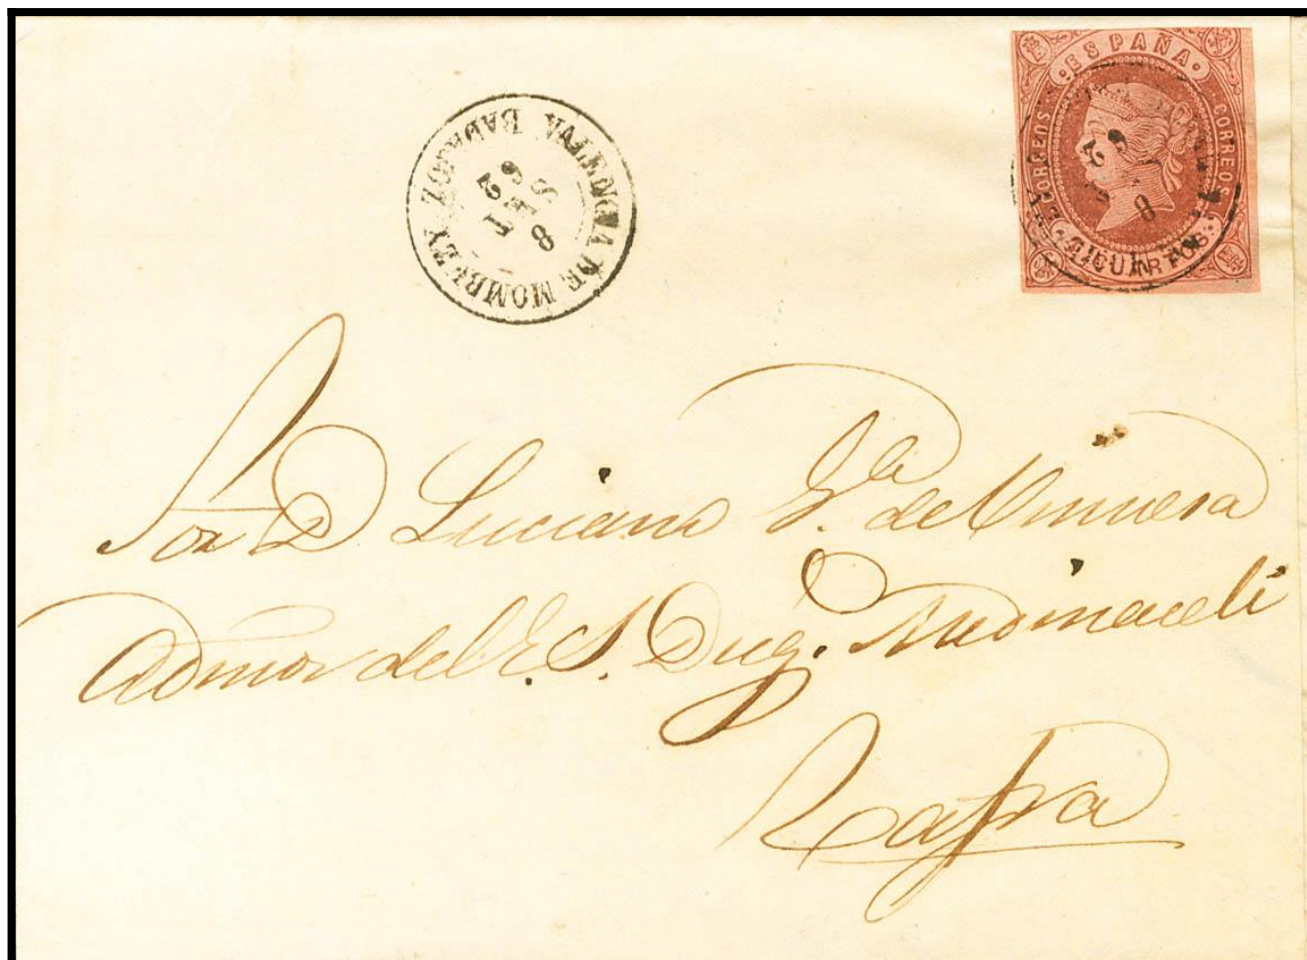 ESPAÑA
CORREOS CORREOS
VALENCIA DE MOMBUEY BADAJOZ
8
62
Sor D Luciano G.ª de
Admor del E. S. Duq. Medinaceli
Zafra